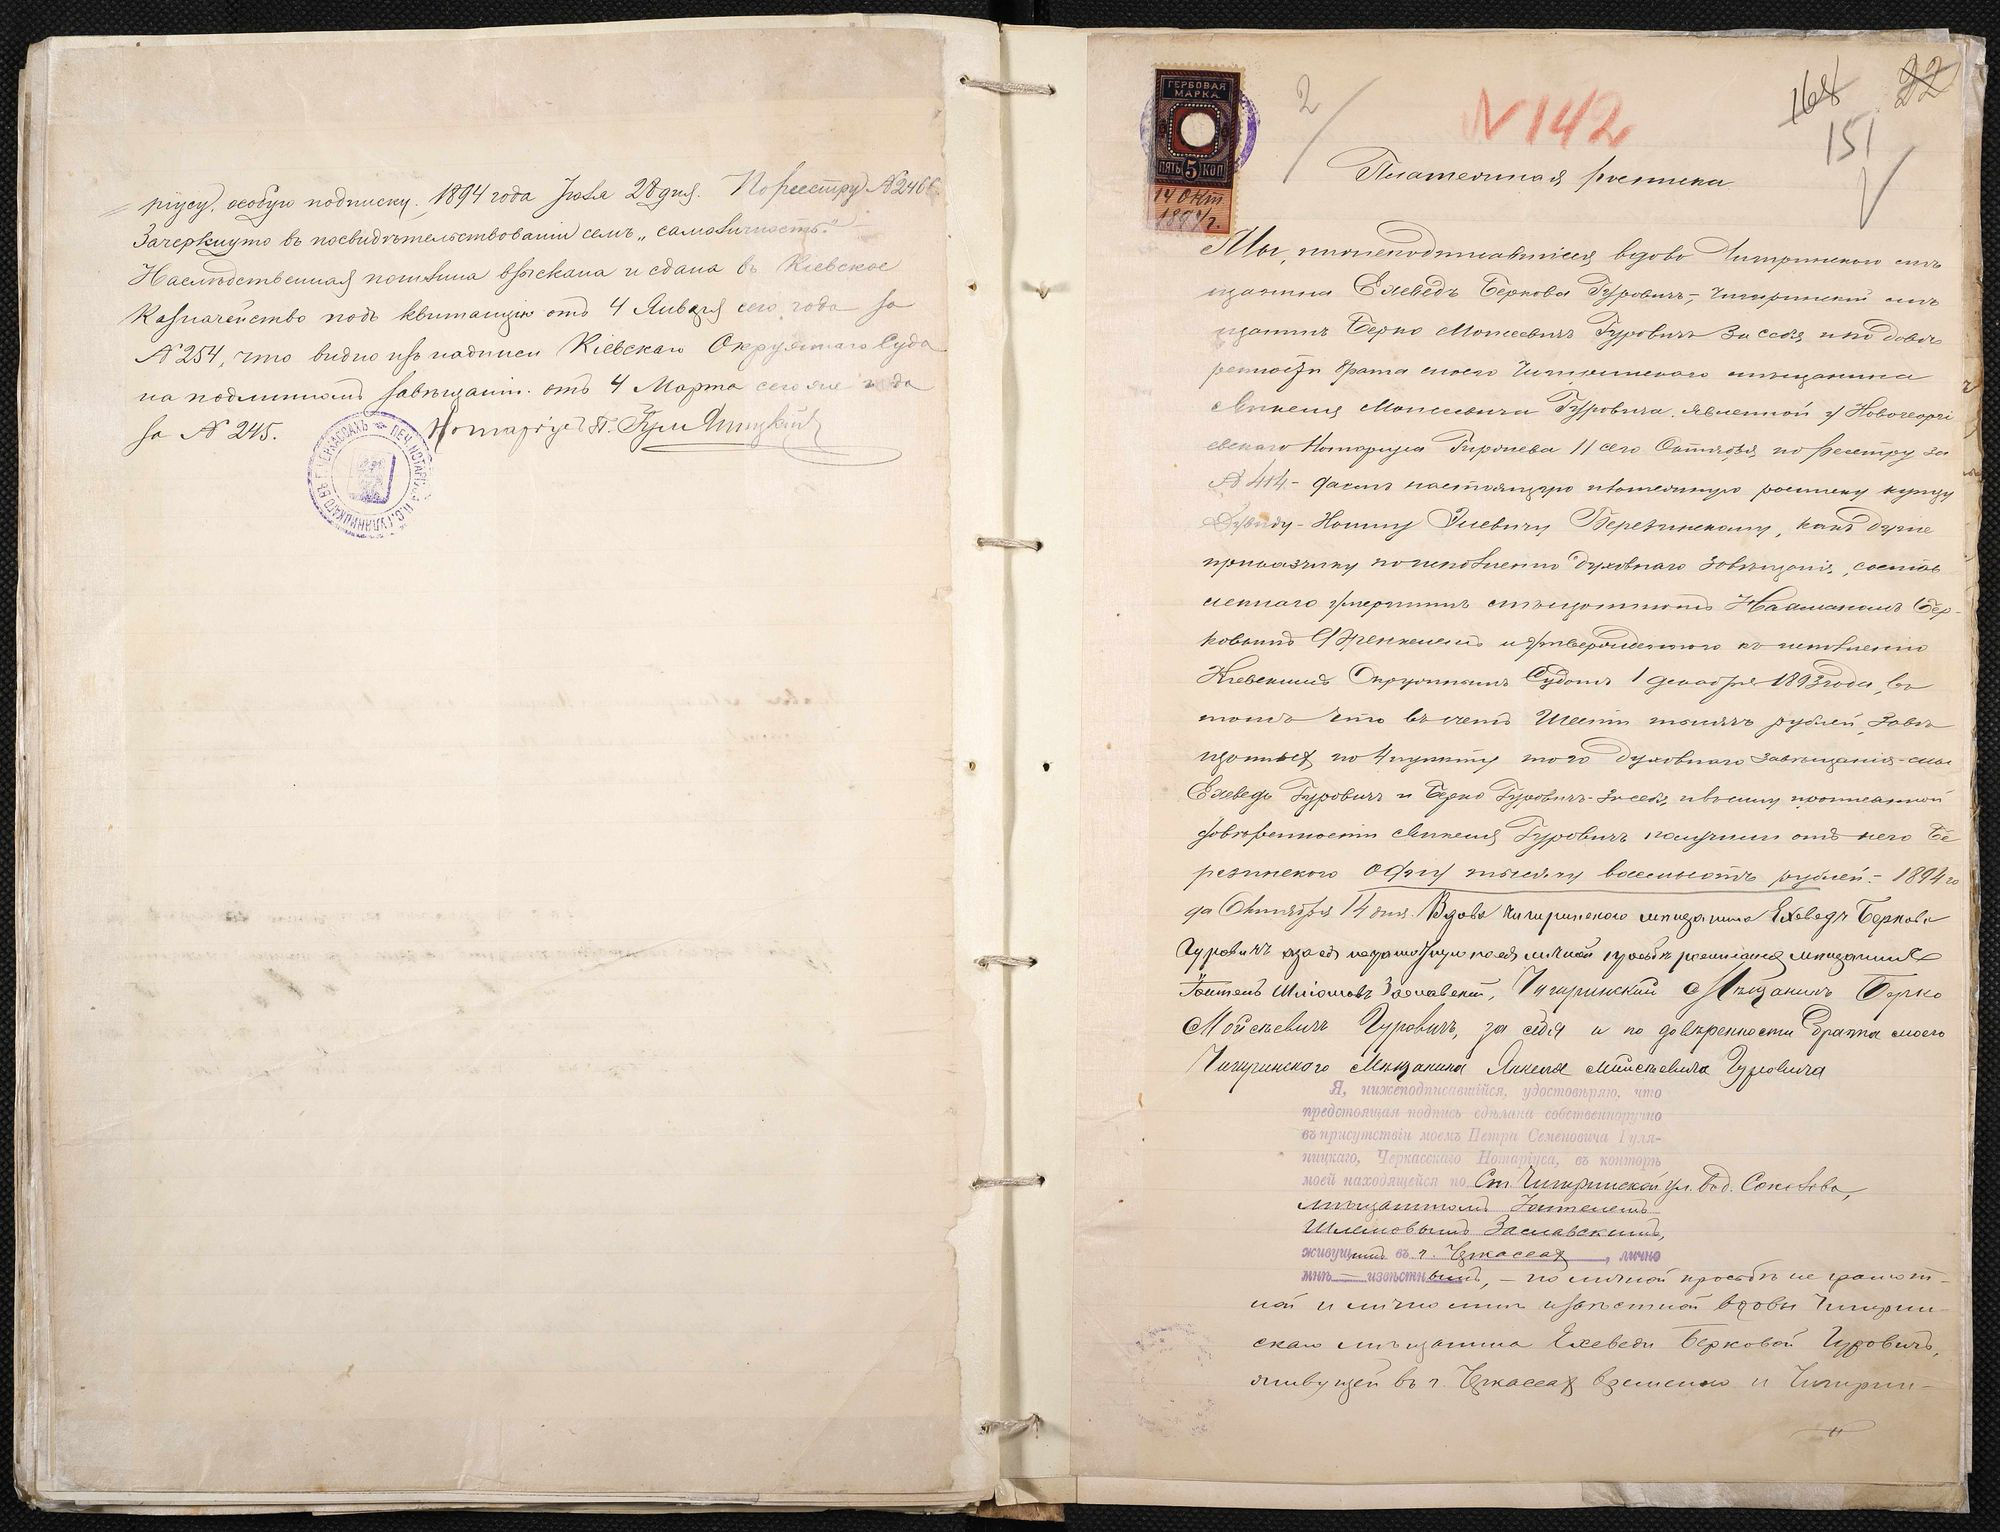 ріусу, особую подписку. 1894 года Іюля 28 дня. По реестру № 2466
Зачеркнуто въ посвидѣтельствованіи семъ „самоличность".
Наслѣдственная пошлина взыскана и сдана въ Кіевское
Казначейство подъ квитанцію отъ 4 Января сего года за
№ 254, что видно изъ надписи Кіевскаго Окружнаго Суда
на подлинномъ завѣщаніи отъ 4 Марта сего же года
за № 245. Нотаріусъ П. Гуляницкій
ГЕРБОВАЯ
МАРКА
ПЯТЬ 5 КОП
14 Окт
1894 г.
2
N 142
168
22
151
Платежная росписка
Мы, нижеподписавшіеся вдова Чигиринскаго мѣ-
щанина Ехеведъ Беркова Гуровичъ, Чигиринскій мѣ-
щанинъ Берко Моисеевичъ Гуровичъ за себя и по довѣ-
ренности брата своего Чигиринскаго мѣщанина
Янкеля Моисеевича Гуровича, явленной у Новогеоргі-
евскаго Нотаріуса 11 сего Октября по реестру за
№ 414 – даемъ настоящую платежную росписку купцу
Дувиду-Нояму Эліевичу Березинскому, какъ душе-
приказчику по исполненію духовнаго завѣщанія, состав-
леннаго умершимъ мѣщаниномъ Нахманомъ Бер-
ковымъ Френкелемъ и утвержденнаго къ исполненію
Кіевскимъ Окружнымъ Судомъ 1 декабря 1893 года, въ
томъ что въ счетъ шести тысячъ рублей, завѣ-
щанныхъ по 4 пункту того духовнаго завѣщанія – мы
Ехеведъ Гуровичъ и Берко Гуровичъ за себя и по прописанной
довѣренности Янкеля Гуровичъ получили отъ него Бе-
резинскаго одну тысячу восемьсотъ рублей. – 1894 го-
да Октября 14 дня. Вдова Чигиринскаго мѣщанина Ехеведъ Беркова
Гуровичъ а за ея неграмотную по ея личной просьбѣ росписался мѣщанинъ
Шліомовъ Заславскій, Чигиринскій Мѣщанинъ Берко
Мойсѣевичъ Гуровичъ, за себя и по довѣренности брата моего
Чигиринскаго Мѣщанина Янкеля Мойсѣевича Гуровича
Я, нижеподписавшійся, удостовѣряю, что
предстоящая подпись сдѣлана собственноручно
въ присутствіи моемъ Петра Семеновича Гуля-
ницкаго, Черкасскаго Нотаріуса, въ конторѣ
моей находящейся по Ст. Чигиринской ул. въ д. Соколова,
мѣщаниномъ
Шлемовымъ Заславскимъ,
живущимъ въ г. Черкассахъ, лично
мнѣ — извѣстнымъ, – по личной просьбѣ не грамот-
ной и лично мнѣ извѣстной вдовы Чигирин-
скаго мѣщанина Ехеведи Берковой Гуровичъ,
живущей въ г. Черкассахъ временно и Чигирин-